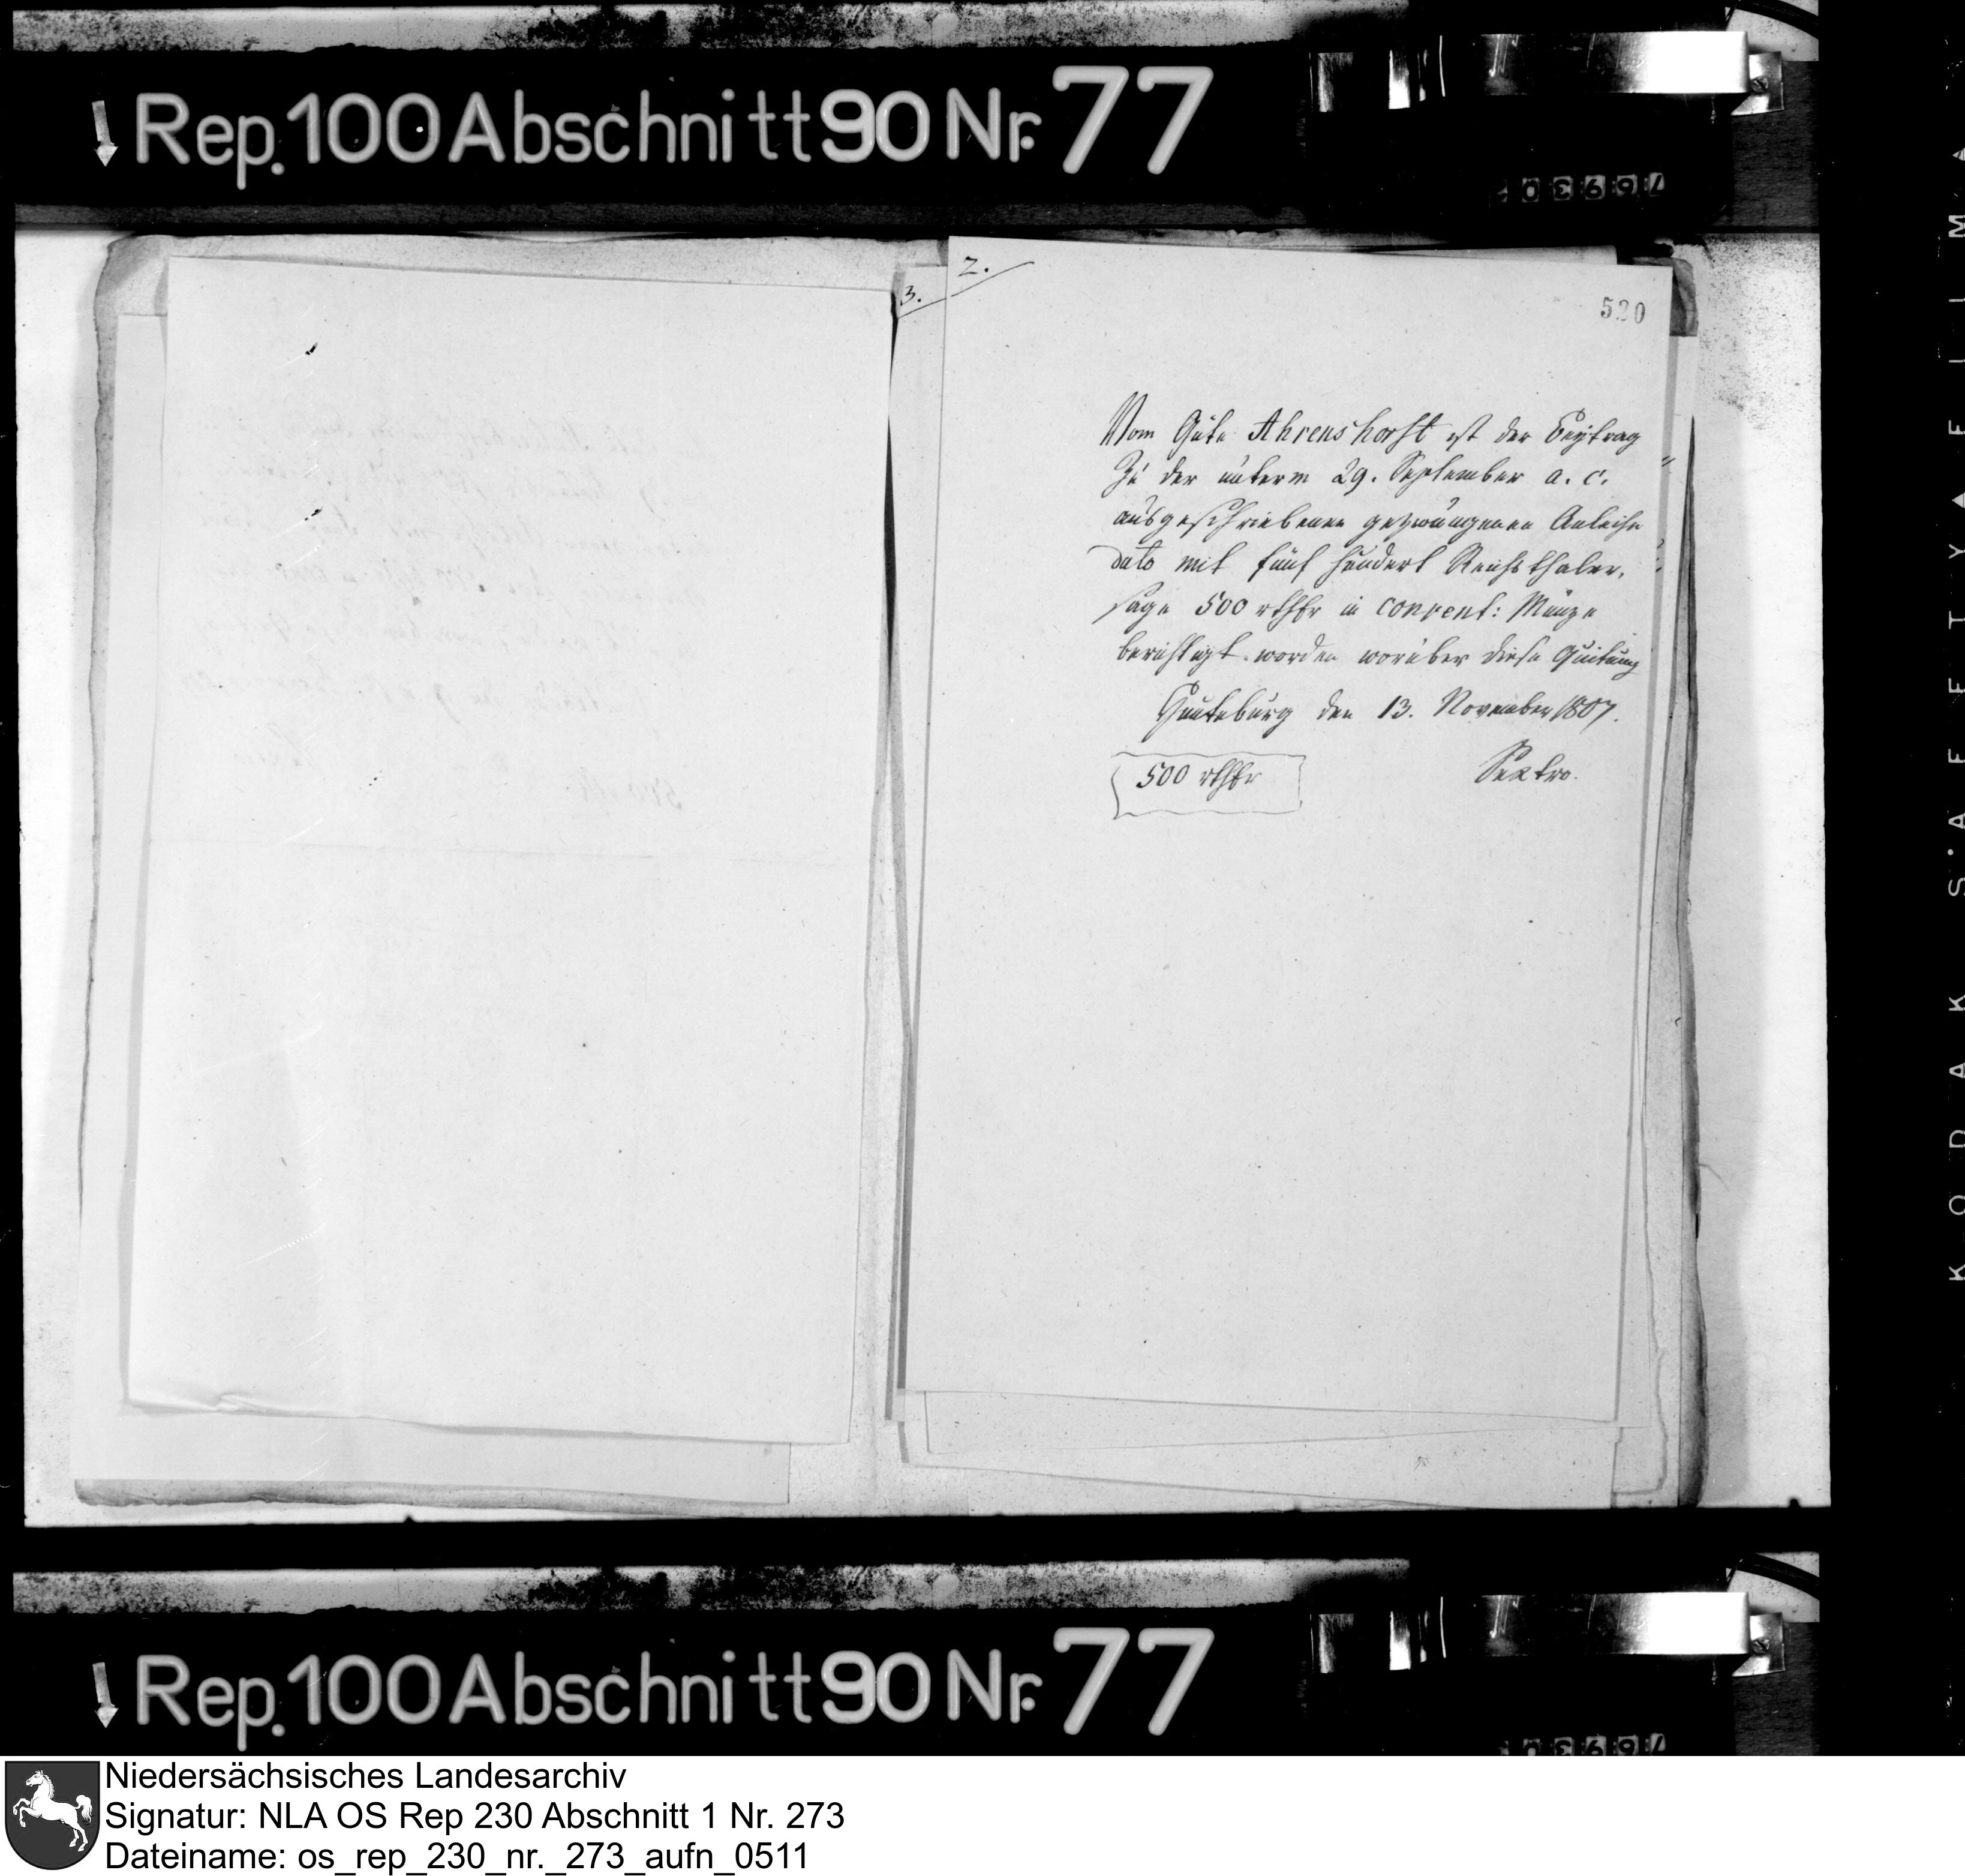 Rep. 100 Abschnitt 90 Nr. 77
3.
2.
520
Vom Gute Ahrenshorst ist der Beytrag
Zu der unterm 29. September a. c.
ausgeschriebenen gezwungenen Anleihe
dato mit fünf hundert Reichsthaler,
sage 500 rthlr in convent: Münze
berichtigt worden worüber diese Quitung
den 13. November 1807.
500 rthlr
Sextro.
Rep. 100 Abschnitt 90 Nr. 77
KODAK SAFETY FILM
Niedersächsisches Landesarchiv
Signatur: NLA OS Rep 230 Abschnitt 1 Nr. 273
Dateiname: os_rep_230_nr._273_aufn_0511